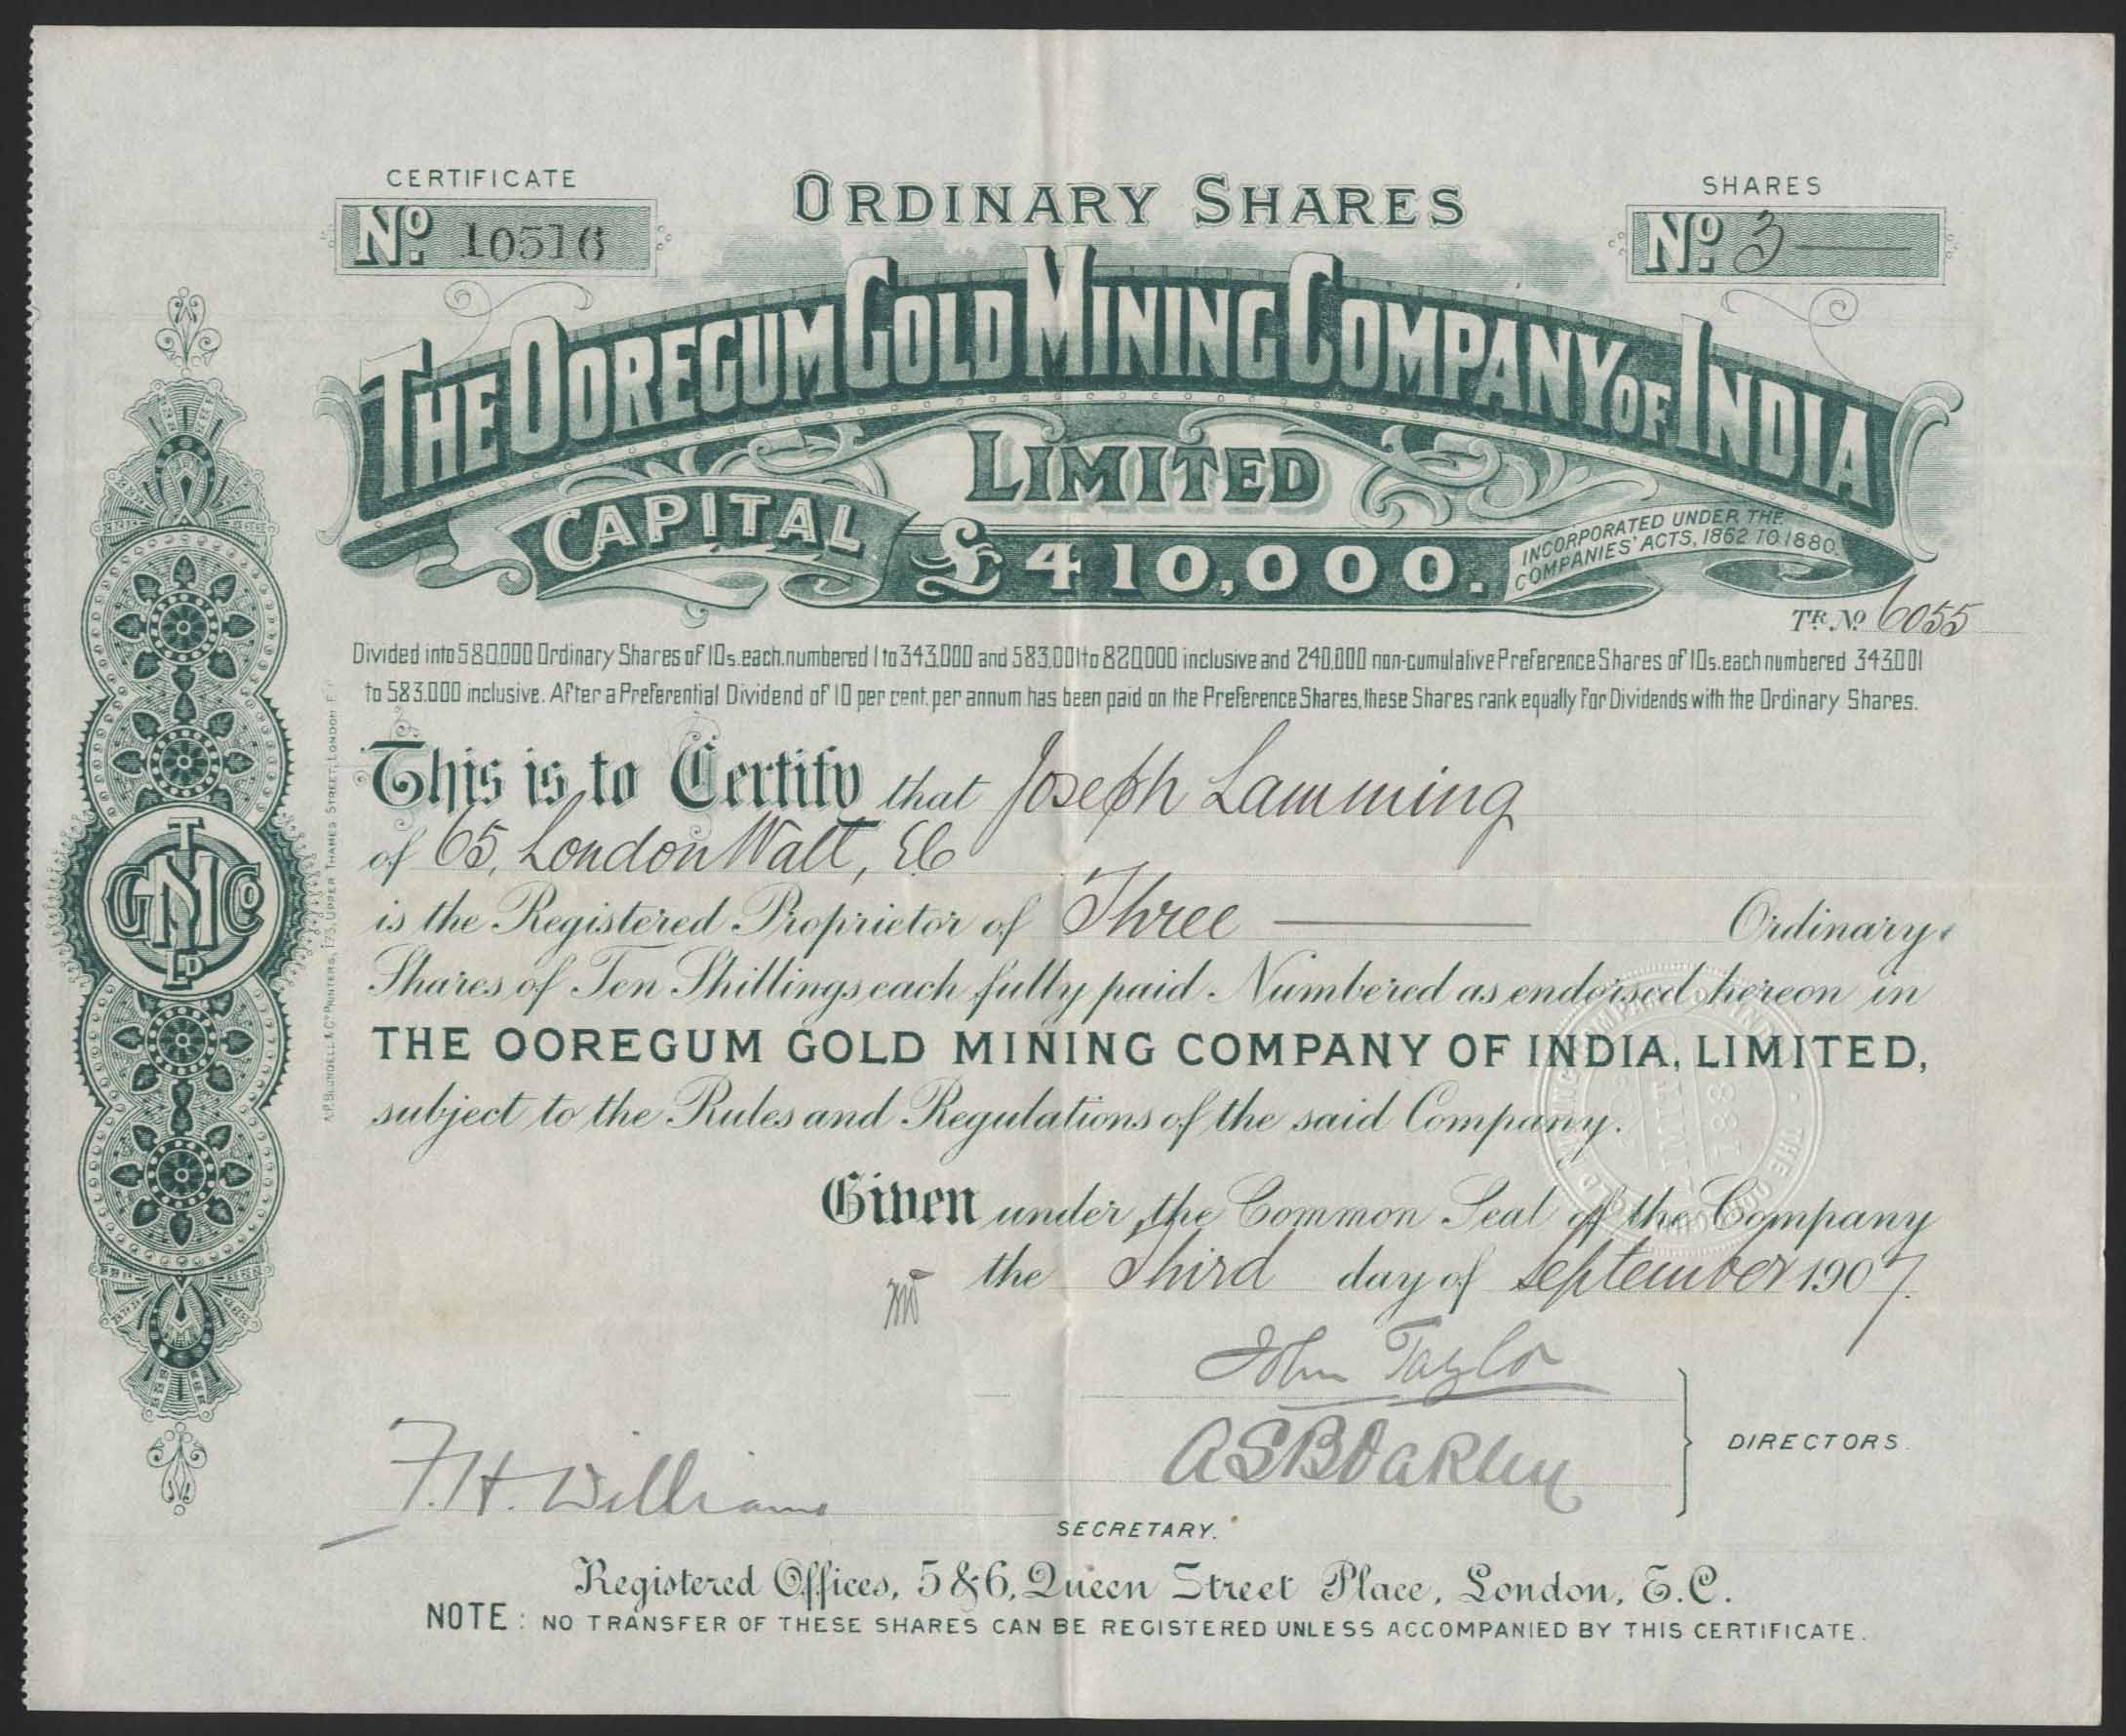 CERTIFICATE
No. 10516
ORDINARY SHARES
SHARES
No. 3
THE OOREGUM GOLD MINING COMPANY OF INDIA
LIMITED
CAPITAL £410,000.
INCORPORATED UNDER THE
COMPANIES' ACTS, 1862 TO 1880.
TR. No. 6055
Divided into 580.000 Ordinary Shares of 10s. each. numbered 1 to 343.000 and 583.001 to 820.000 inclusive and 240.000 non-cumulative Preference Shares of 10s. each numbered 343.001
to 583.000 inclusive. After a Preferential Dividend of 10 per cent. per annum has been paid on the Preference Shares, these Shares rank equally for Dividends with the Ordinary Shares.
This is to Certify that Joseph Lamming
of 65, London Wall, E.C
is the Registered Proprietor of Three Ordinary
Shares of Ten Shillings each fully paid. Numbered as endorsed hereon in
THE OOREGUM GOLD MINING COMPANY OF INDIA, LIMITED,
subject to the Rules and Regulations of the said Company.
Given under the Common Seal of the Company
the Third day of September 1907.
John Taylor
ASB Oakley
DIRECTORS.
F. H. Williams
SECRETARY.
Registered Offices, 5 & 6, Queen Street Place, London, E.C.
NOTE: NO TRANSFER OF THESE SHARES CAN BE REGISTERED UNLESS ACCOMPANIED BY THIS CERTIFICATE.
T
GMCo
LD
A.P. BLUNDELL & Co. PRINTERS, 173, UPPER THAMES STREET, LONDON